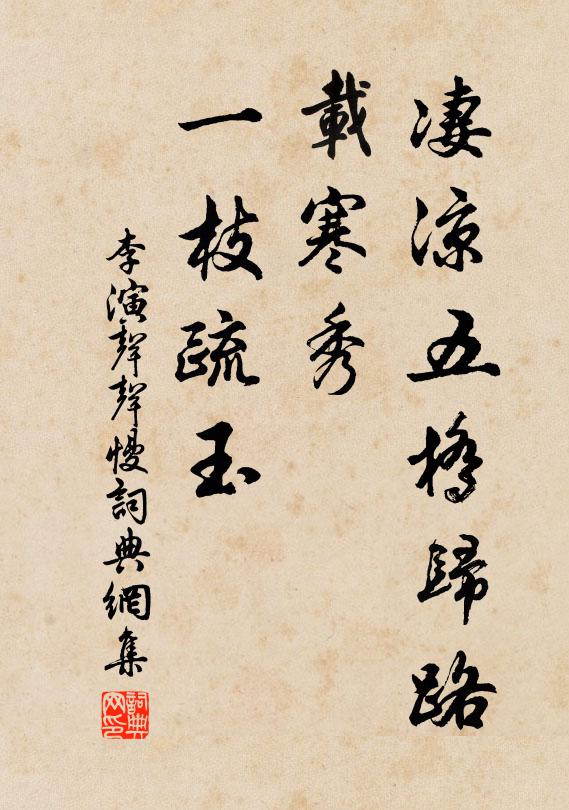 凄涼五橋歸路
載寒秀
一枝疏玉
李演聲聲慢詞典網集
詞典網印